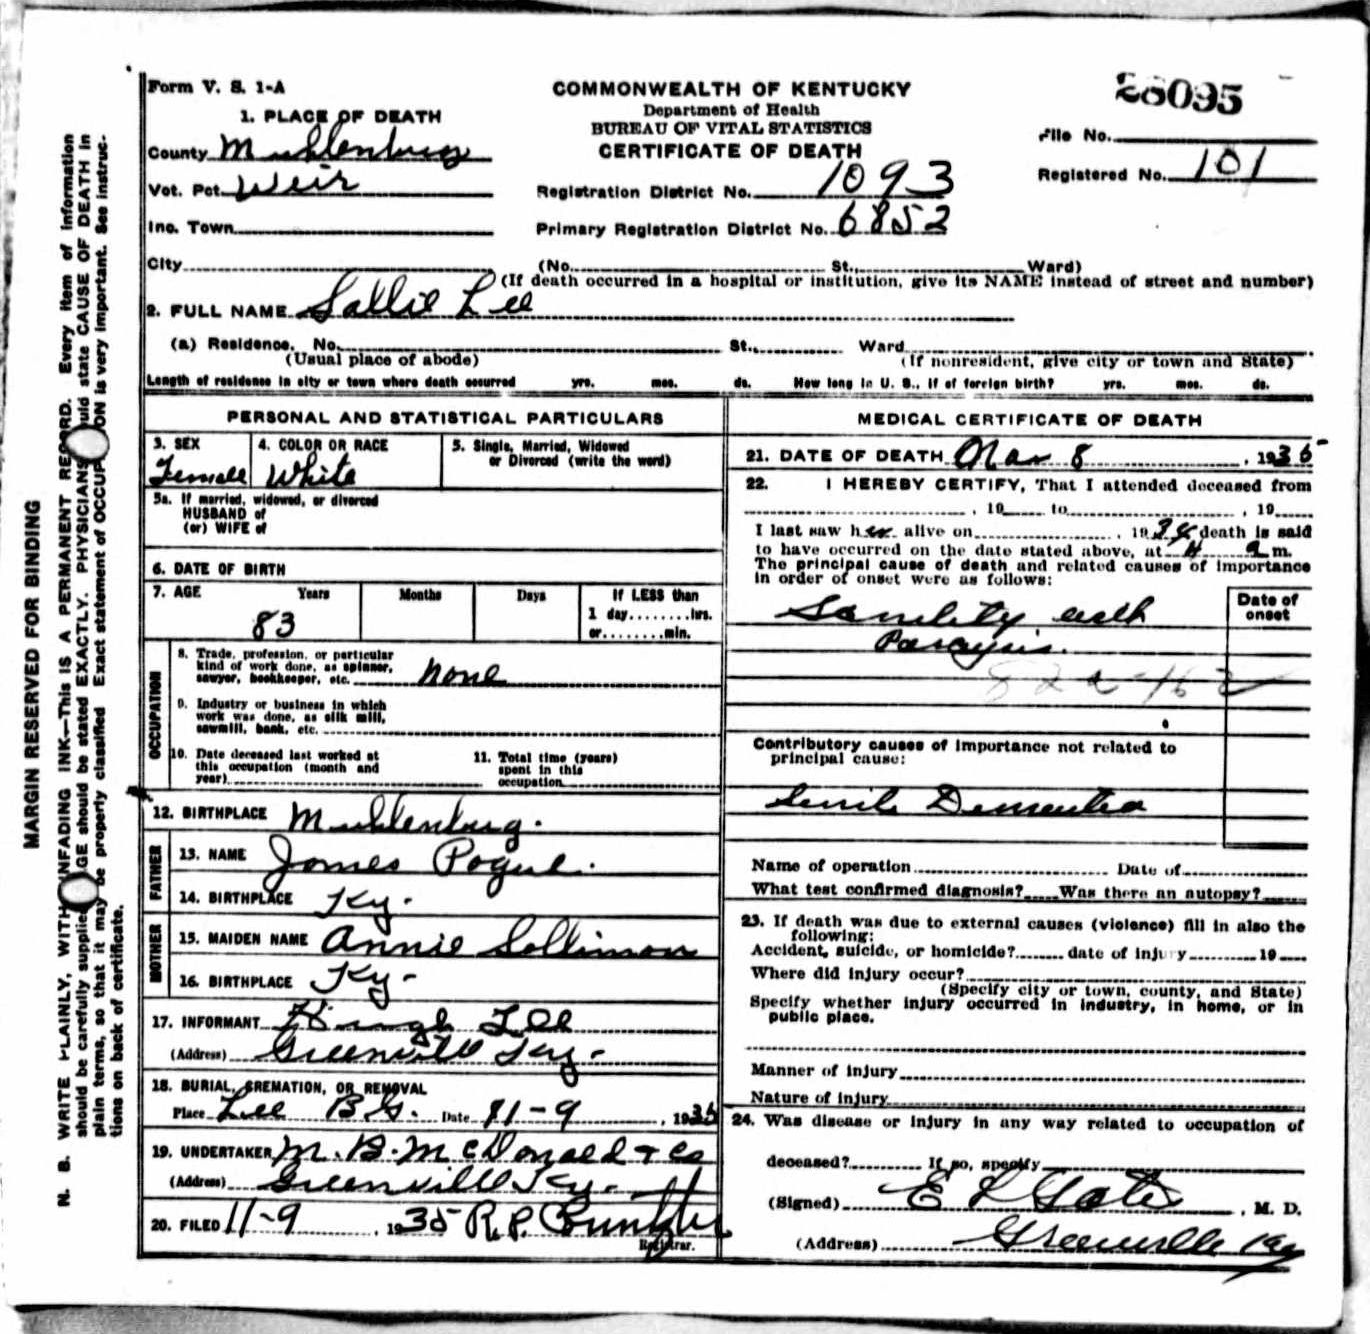 Form V. S. 1-A
COMMONWEALTH OF KENTUCKY
Department of Health
BUREAU OF VITAL STATISTICS
CERTIFICATE OF DEATH
28095
File No.
Registered No. 101
1. PLACE OF DEATH
County Muhlenburg
Vot. Pct. Weir
Registration District No. 1093
Inc. Town
Primary Registration District No. 6852
City (No. St., Ward)
(If death occurred in a hospital or institution, give its NAME instead of street and number)
2. FULL NAME Sallie Lee
(a) Residence. No. St., Ward
(Usual place of abode) (If nonresident, give city or town and State)
Length of residence in city or town where death occurred yrs. mos. ds. How long in U. S., if of foreign birth? yrs. mos. ds.
PERSONAL AND STATISTICAL PARTICULARS
3. SEX
Femall
4. COLOR OR RACE
White
5. Single, Married, Widowed
or Divorced (write the word)
5a. If married, widowed, or divorced
HUSBAND of
(or) WIFE of
6. DATE OF BIRTH
7. AGE Years Months Days If LESS than
1 day........hrs.
or........min.
83
OCCUPATION
8. Trade, profession, or particular
kind of work done, as spinner,
sawyer, bookkeeper, etc. none
9. Industry or business in which
work was done, as silk mill,
sawmill, bank, etc.
10. Date deceased last worked at
this occupation (month and
year)
11. Total time (years)
spent in this
occupation
12. BIRTHPLACE Muhlenburg.
FATHER
13. NAME James Pogue.
14. BIRTHPLACE Ky.
MOTHER
15. MAIDEN NAME Annie
16. BIRTHPLACE Ky-
17. INFORMANT Hugh Lee
(Address) Greenville Ky-
18. BURIAL, CREMATION, OR REMOVAL
Place Lee B.G. Date 11-9, 1935
19. UNDERTAKER M. B. McDonald + Co
(Address) Greenville Ky-
20. FILED 11-9, 1935 R.P.
Registrar.
MEDICAL CERTIFICATE OF DEATH
21. DATE OF DEATH 8, 1935
22. I HEREBY CERTIFY, That I attended deceased from
, 19 to , 19
I last saw her alive on , 1934 death is said
to have occurred on the date stated above, at a m.
The principal cause of death and related causes of importance
in order of onset were as follows:
Date of
onset
Contributory causes of importance not related to
principal cause:
Senile Dementia
Name of operation Date of
What test confirmed diagnosis? Was there an autopsy?
23. If death was due to external causes (violence) fill in also the
following:
Accident, suicide, or homicide? date of injury 19
Where did injury occur?
(Specify city or town, county, and State)
Specify whether injury occurred in industry, in home, or in
public place.
Manner of injury
Nature of injury
24. Was disease or injury in any way related to occupation of
deceased? If so, specify
(Signed) E L Gates, M. D.
(Address) Greenville Ky
MARGIN RESERVED FOR BINDING
N. B. WRITE PLAINLY, WITH UNFADING INK—THIS IS A PERMANENT RECORD. Every item of information
should be carefully supplied. AGE should be stated EXACTLY. PHYSICIANS should state CAUSE OF DEATH in
plain terms, so that it may be properly classified. Exact statement of OCCUPATION is very important. See instruc-
tions on back of certificate.